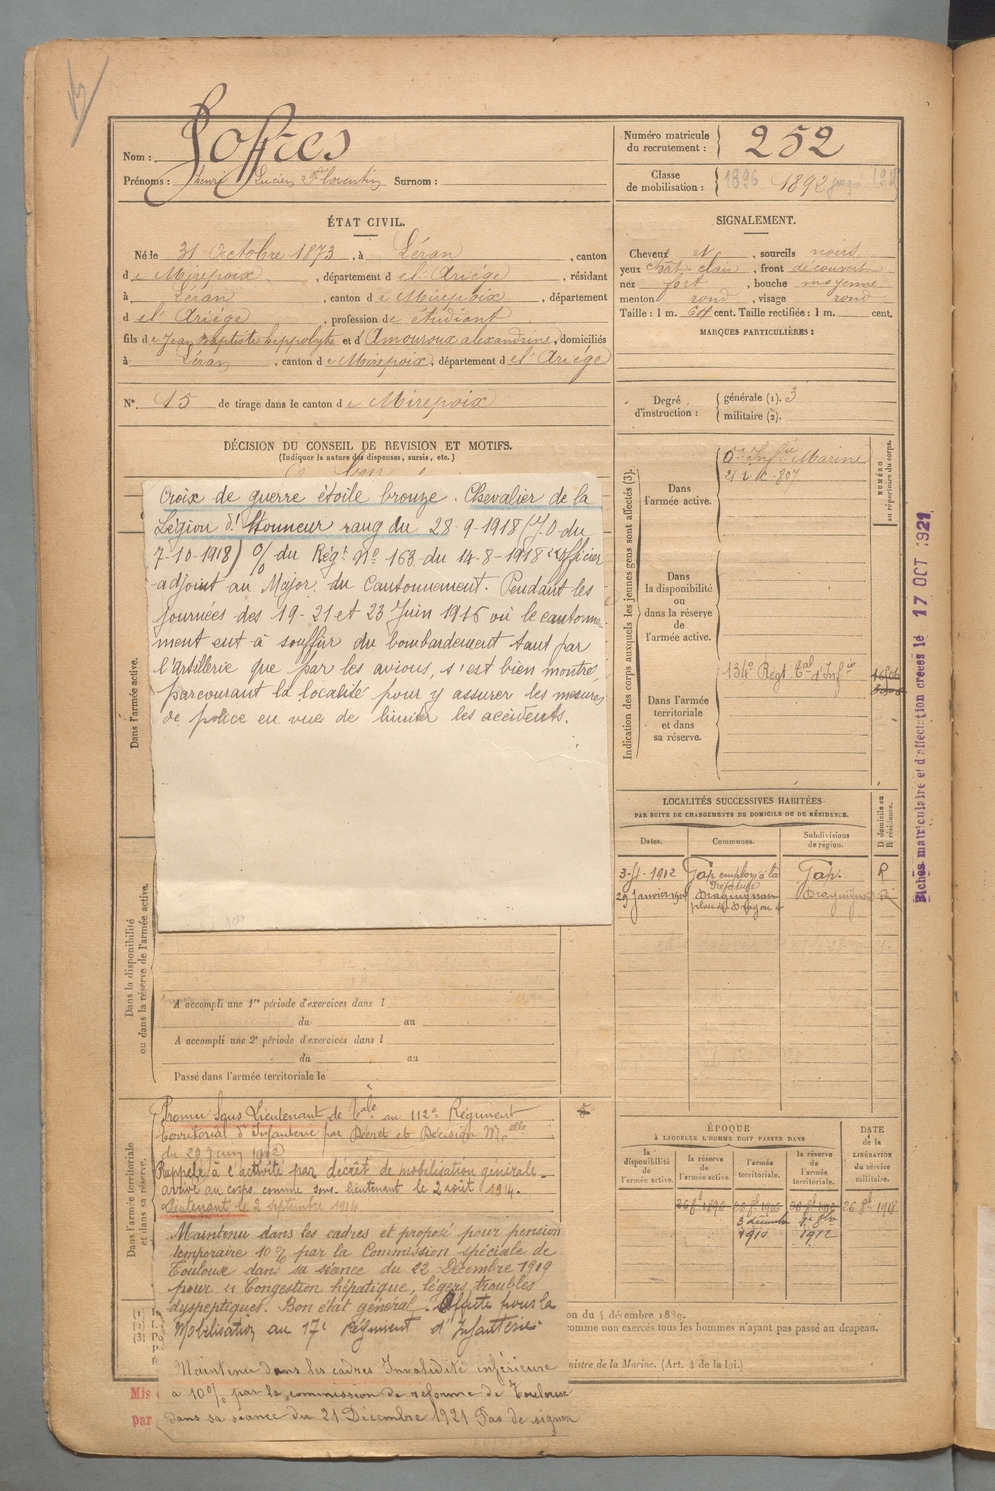 Nom : Joffres
Prénoms : henri Lucien Florentin Surnom :
Numéro matricule du recrutement : 252
Classe de mobilisation : 1896 1892
ÉTAT CIVIL.
Né le 31 Octobre 1873, à Léran, canton
de Mirepoix, département de l'Ariège, résidant
à Léran, canton de Mirepoix, département
de l'Ariège, profession de étudiant
fils de Jean Baptiste hippolyte et d'Amouroux alexandrine, domiciliés
à Léran, canton de Mirepoix, département de l'Ariège
N° 15 de tirage dans le canton de Mirepoix
SIGNALEMENT.
Cheveux et, sourcils noirs
yeux chât. clair, front découvert
nez fort, bouche moyenne
menton rond, visage rond
Taille : 1 m. 64 cent. Taille rectifiée : 1 m. cent.
MARQUES PARTICULIÈRES :
Degré d'instruction : générale (1). 3
militaire (2).
DÉCISION DU CONSEIL DE REVISION ET MOTIFS.
(Indiquer la nature des dispenses, sursis, etc.)
Croix de guerre étoile bronze. Chevalier de la
Légion d'Honneur rang du 28-9-1918 (J.O du
7-10-1918) O/ du Régt N° 163 du 14-8-1918 "Officier
adjoint au Major du Cantonnement. Pendant les
journées des 19-21 et 23 Juin 1916 où le cantonne-
ment eut à souffrir du bombardement tant par
l'artillerie que par les avions, s'est bien montré,
parcourant la localité pour y assurer les mesures
de police en vue de limiter les accidents.
Dans l'armée active.
Dans la disponibilité ou dans la réserve de l'armée active.
A accompli une 1re période d'exercices dans l
du au
A accompli une 2e période d'exercices dans l
du au
Passé dans l'armée territoriale le
Dans l'armée territoriale et dans sa réserve.
Promu Sous Lieutenant de Rale au 112e Régiment
territorial d'Infanterie par Décret et Décision Melle
du 29 Juin 1902
Rappelé à l'activité par décret de mobilisation générale
arrivé au corps comme sous-lieutenant le 2 août 1914.
Lieutenant le 2 septembre 1914
Maintenu dans les cadres et proposé pour pension
temporaire 10% par la Commission spéciale de
Toulouse dans sa séance du 22 Décembre 1919
pour "Congestion hépatique, légers troubles
dyspeptiques. Bon état général. Affecté pour la
Mobilisation au 17e Régiment d'Infanterie.
Maintenu dans les cadres Invalidité inférieure
à 10% par la commission de réforme de Toulouse
dans sa séance du 21 Décembre 1921 Pas de
Mis
par
Indication des corps auxquels les jeunes gens sont affectés (3).
NUMÉRO au répertoire du corps.
Dans l'armée active. Infie Marine
Dans la disponibilité ou dans la réserve de l'armée active.
Dans l'armée territoriale et dans sa réserve. 134e Régt tal d'Infie
LOCALITÉS SUCCESSIVES HABITÉES
PAR SUITE DE CHANGEMENTS DE DOMICILE OU DE RÉSIDENCE.
Dates. Communes. Subdivisions de région. D domicile ou R résidence.
1912 Gap employé à la Préfecture Gap. R
29 Janvier Draguignan Draguignan
ÉPOQUE
À LAQUELLE L'HOMME DOIT PASSER DANS
la disponibilité de l'armée active.
la réserve de l'armée active
l'armée territoriale.
la réserve de l'armée territoriale.
DATE de la LIBÉRATION du service militaire.
on du 4 décembre 1889.
comme non exercés tous les hommes n'ayant pas passé au drapeau.
nistre de la Marine. (Art. 4 de la loi.)
Fiches matriculaire et d'affectation créées le 17 OCT 1921